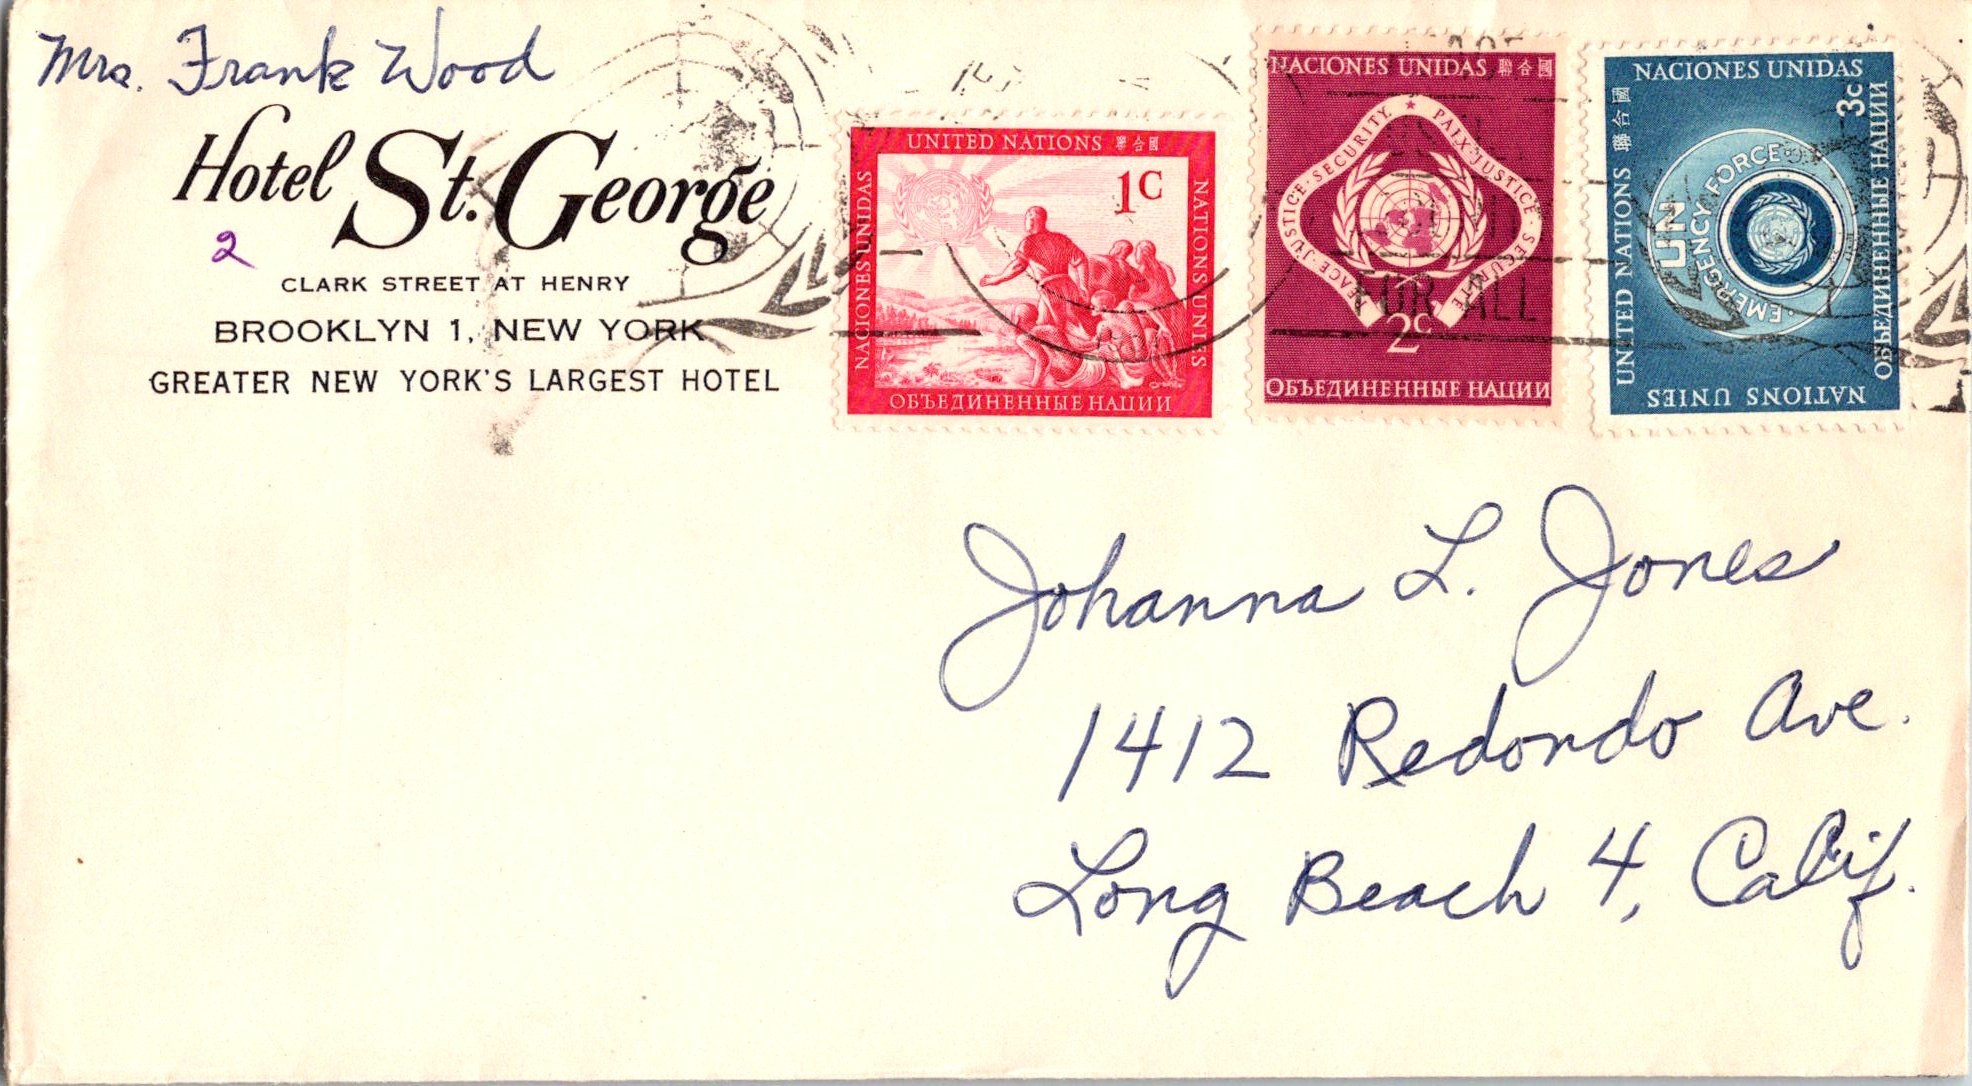 Mrs. Frank Wood
Hotel St. George
2
CLARK STREET AT HENRY
BROOKLYN 1, NEW YORK
GREATER NEW YORK'S LARGEST HOTEL
UNITED NATIONS 聯合國
1c
NACIONES UNIDAS
NATIONS UNIES
ОБЪЕДИНЕННЫЕ НАЦИИ
NACIONES UNIDAS 聯合國
PEACE·JUSTICE·SECURITY ★ PAIX·JUSTICE·SÉCURITÉ
FOR ALL
2c
ОБЪЕДИНЕННЫЕ НАЦИИ
NACIONES UNIDAS
3c
UNITED NATIONS 聯合國
UN
EMERGENCY FORCE
ОБЪЕДИНЕННЫЕ НАЦИИ
NATIONS UNIES
Johanna L. Jones
1412 Redondo Ave.
Long Beach 4, Calif.